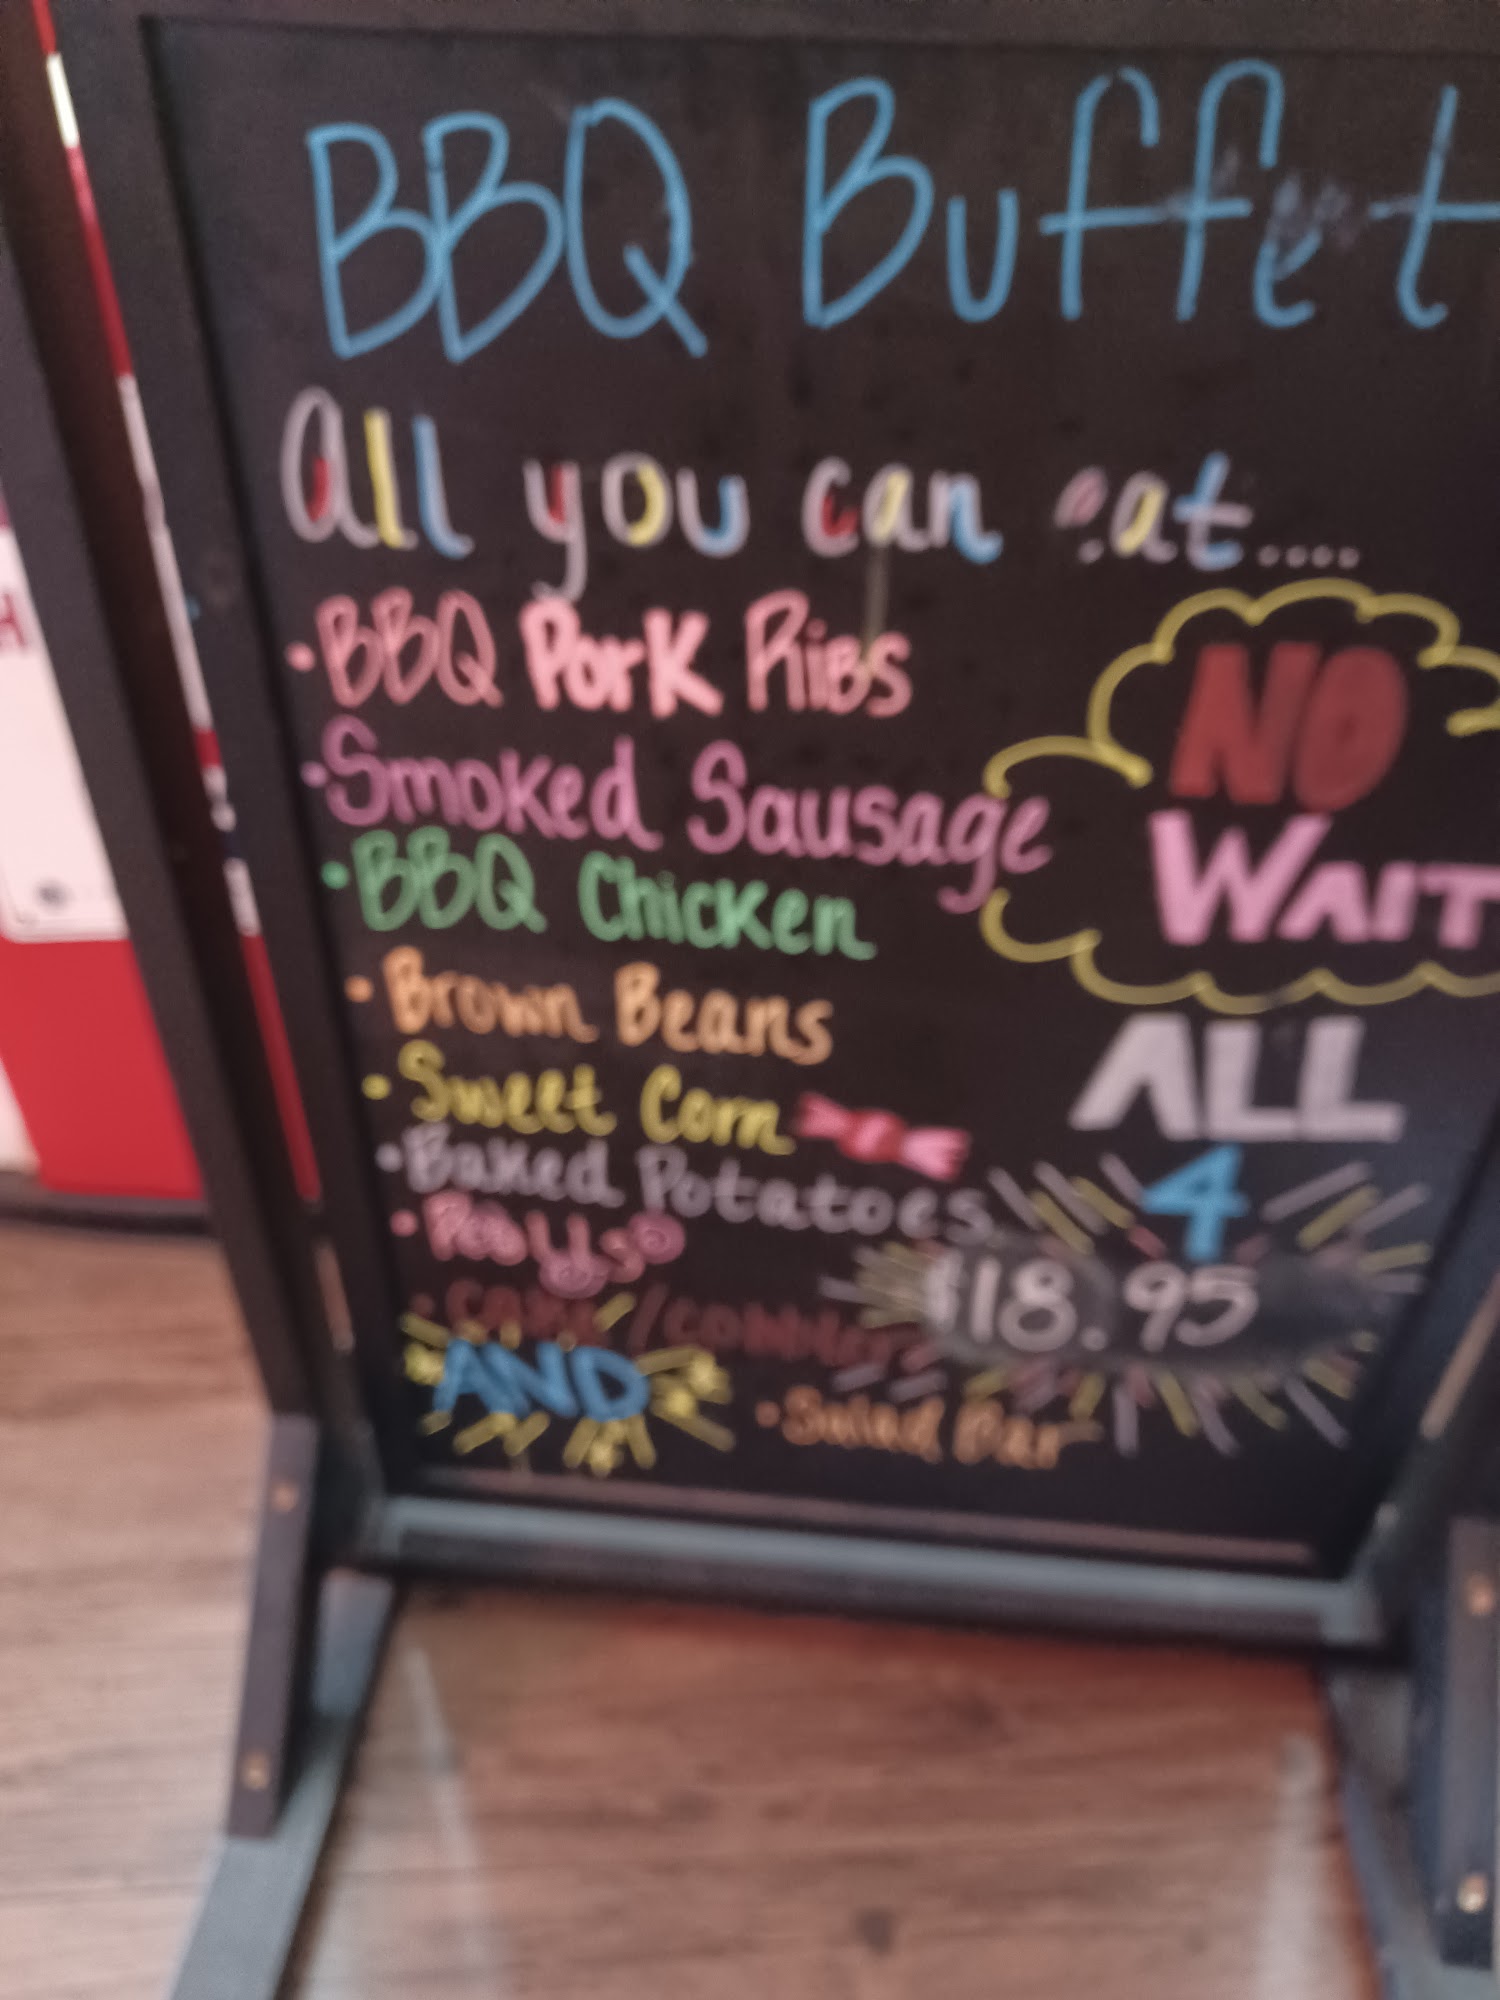 BBQ Buffet
all you can eat....
• BBQ Pork Ribs
• Smoked Sausage
• BBQ Chicken
• Brown Beans
• Sweet Corn
• Baked Potatoes
• Rolls
NO
WAIT
ALL
4
$18.95
AND
• Salad Bar
H